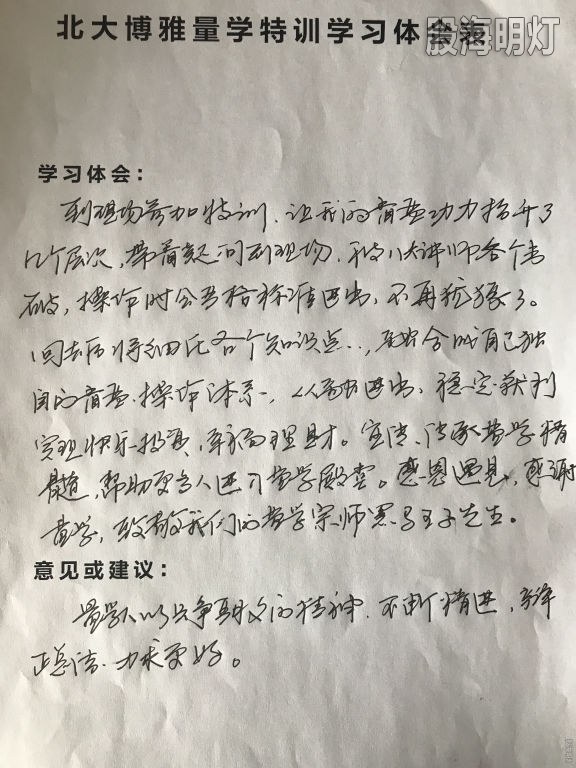 北大博雅量学特训学习体会表
股海明灯
学习体会：
到现场参加特训，让我的看盘功力指升了
几个层次，带着疑问到现场，被八大讲师各个击
破，操作时会严格标准进出，不再犹豫了。
回去后将细化各个知识点，合成自己独
自的看盘操作体系，进出、稳定获利
实现快乐投资，理财。宣传、传承量学精
髓，帮助更多人进入量学殿堂。感恩遇见，感谢
量学，致敬我们的量学宗师黑马王子先生。
意见或建议：
量学人以只争朝夕的精神，不断精进，
正总结，力求更好。